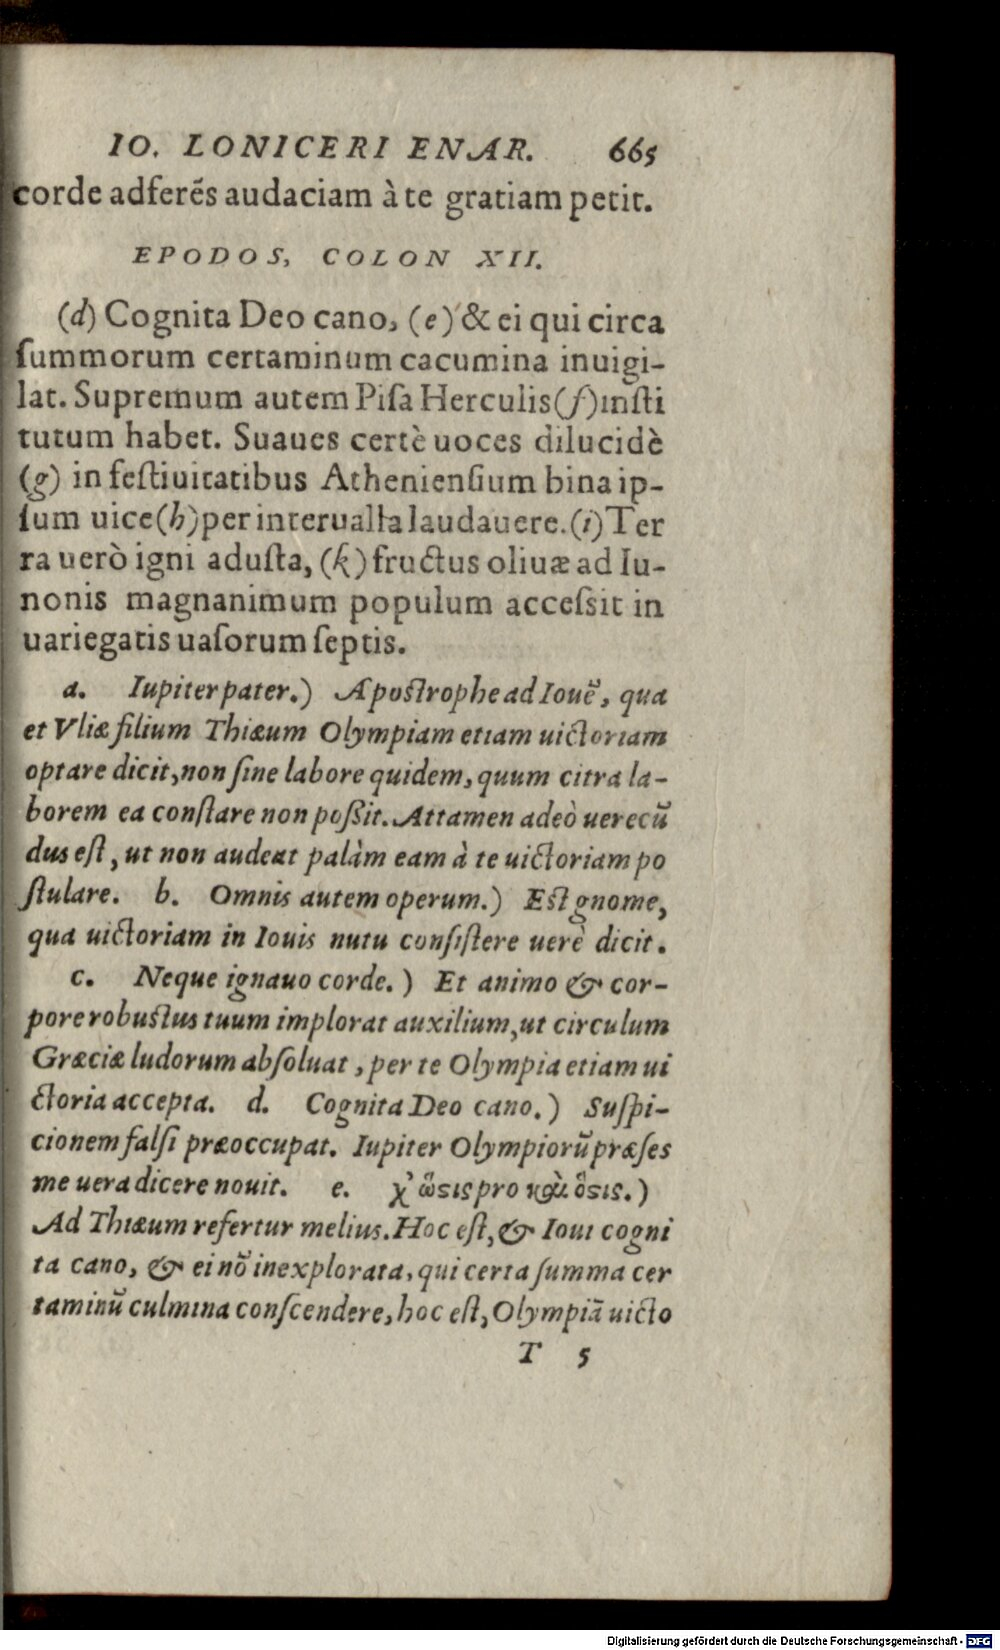 IO. LONICERI ENAR. 665
corde adferẽs audaciam à te gratiam petit.
EPODOS, COLON XII.
(d) Cognita Deo cano, (e) & ei qui circa
ſummorum certaminum cacumina inuigi-
lat. Supremum autem Piſa Herculis (f) inſti
tutum habet. Suaues certè uoces dilucidè
(g) in feſtiuitatibus Athenienſium bina ip-
ſum uice (h) per interualla laudauere. (i) Ter
ra uerò igni aduſta, (k) fructus oliuæ ad Iu-
nonis magnanimum populum acceſsit in
uariegatis uaſorum ſeptis.
a. Iupiter pater.) Apoſtrophe ad Iouẽ, qua
et Vliæ filium Thiæum Olympiam etiam uictoriam
optare dicit, non ſine labore quidem, quum citra la-
borem ea conſtare non poßit. Attamen adeò uerecũ
dus eſt, ut non audeat palàm eam à te uictoriam po
ſtulare. b. Omnis autem operum.) Eſt gnome,
qua uictoriam in Iouis nutu conſiſtere uerè dicit.
c. Neque ignauo corde.) Et animo & cor-
pore robuſtus tuum implorat auxilium, ut circulum
Græciæ ludorum abſoluat, per te Olympia etiam ui
ctoria accepta. d. Cognita Deo cano.) Suſpi-
cionem falſi præoccupat. Iupiter Olympiorũ præſes
me uera dicere nouit. e. χ᾽ ὥσις pro καὶ ὅσις.)
Ad Thiæum refertur melius. Hoc eſt, & Ioui cogni
ta cano, & ei nõ inexplorata, qui certa ſumma cer
taminũ culmina conſcendere, hoc eſt, Olympiã uicto
T 5
Digitalisierung gefördert durch die Deutsche Forschungsgemeinschaft - DFG